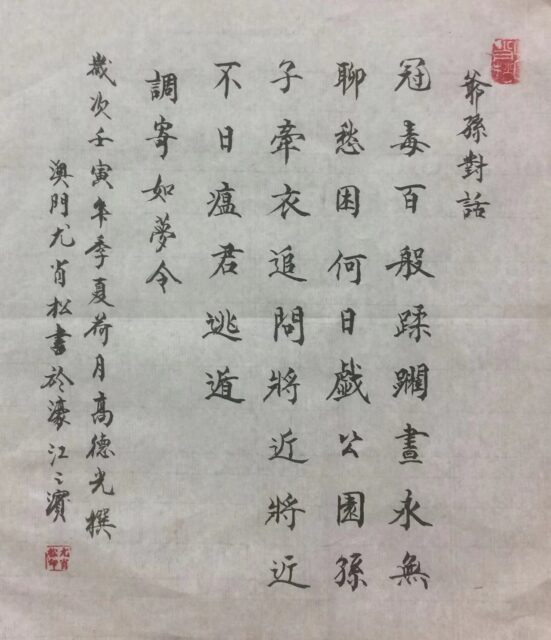 爺孫對話
冠毒百般蹂躪晝永無
聊愁困何日戲公園孫
子牽衣追問將近將近
不日瘟君逃遁
調寄如夢令
歲次壬寅年季夏荷月高德光撰
澳門尤肖松書於濠江之濱
尤肖松印